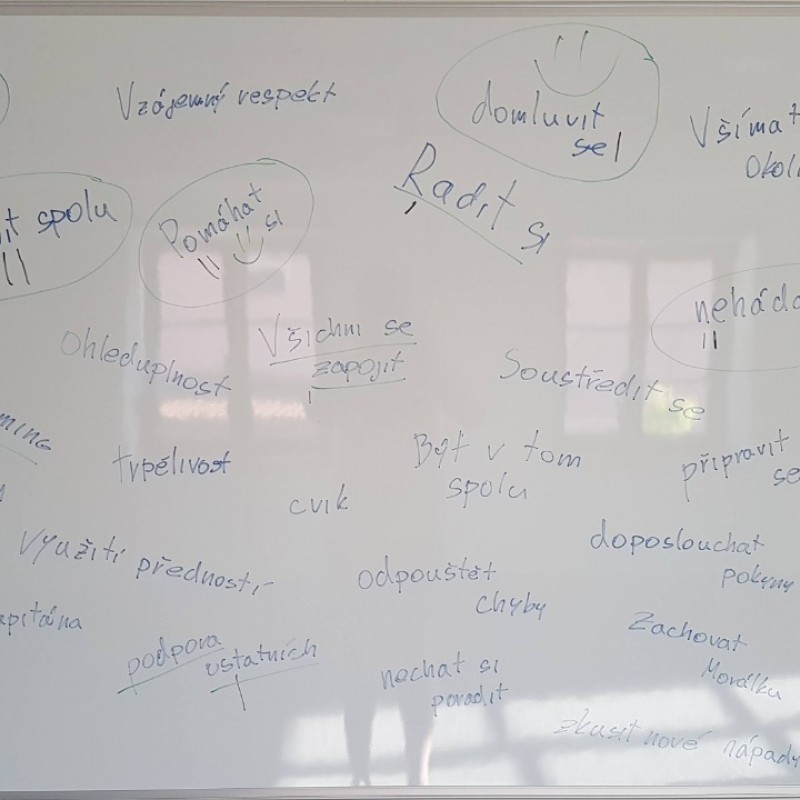 Vzájemný respekt
domluvit
se
Všímat
Okolí
spolu
Pomáhat
si
Radit si
neháda
Ohleduplnost
Všichni se
zapojit
Soustředit se
trpělivost
Být v tom
spolu
připravit
se
cvik
Využití předností
doposlouchat
pokyny
odpouštět
chyby
Zachovat
Morálku
podpora
ostatních
nechat si
poradit
zkusit nové nápady